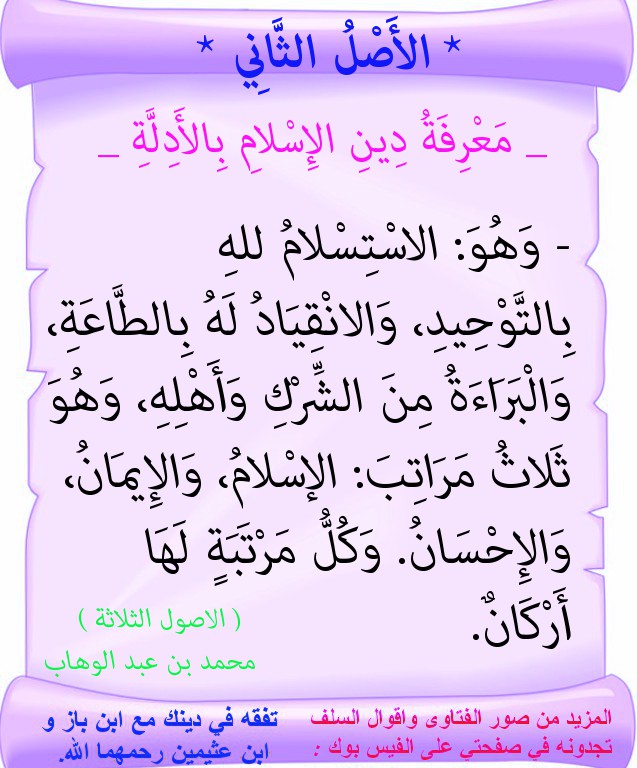 * الأَصْلُ الثَّانِي *
_ مَعْرِفَةُ دِينِ الإِسْلامِ بِالأَدِلَّةِ _
- وَهُوَ: الاسْتِسْلامُ للهِ
بِالتَّوْحِيدِ، وَالانْقِيَادُ لَهُ بِالطَّاعَةِ،
وَالْبَرَاءَةُ مِنَ الشِّرْكِ وَأَهْلِهِ، وَهُوَ
ثَلاثُ مَرَاتِبَ: الإسْلامُ، وَالإِيمَانُ،
وَالإِحْسَانُ. وَكُلُّ مَرْتَبَةٍ لَهَا
أَرْكَانٌ.
( الاصول الثلاثة )
محمد بن عبد الوهاب
المزيد من صور الفتاوى واقوال السلف
تجدونه في صفحتي على الفيس بوك :
تفقه في دينك مع ابن باز و
ابن عثيمين رحمهما الله.